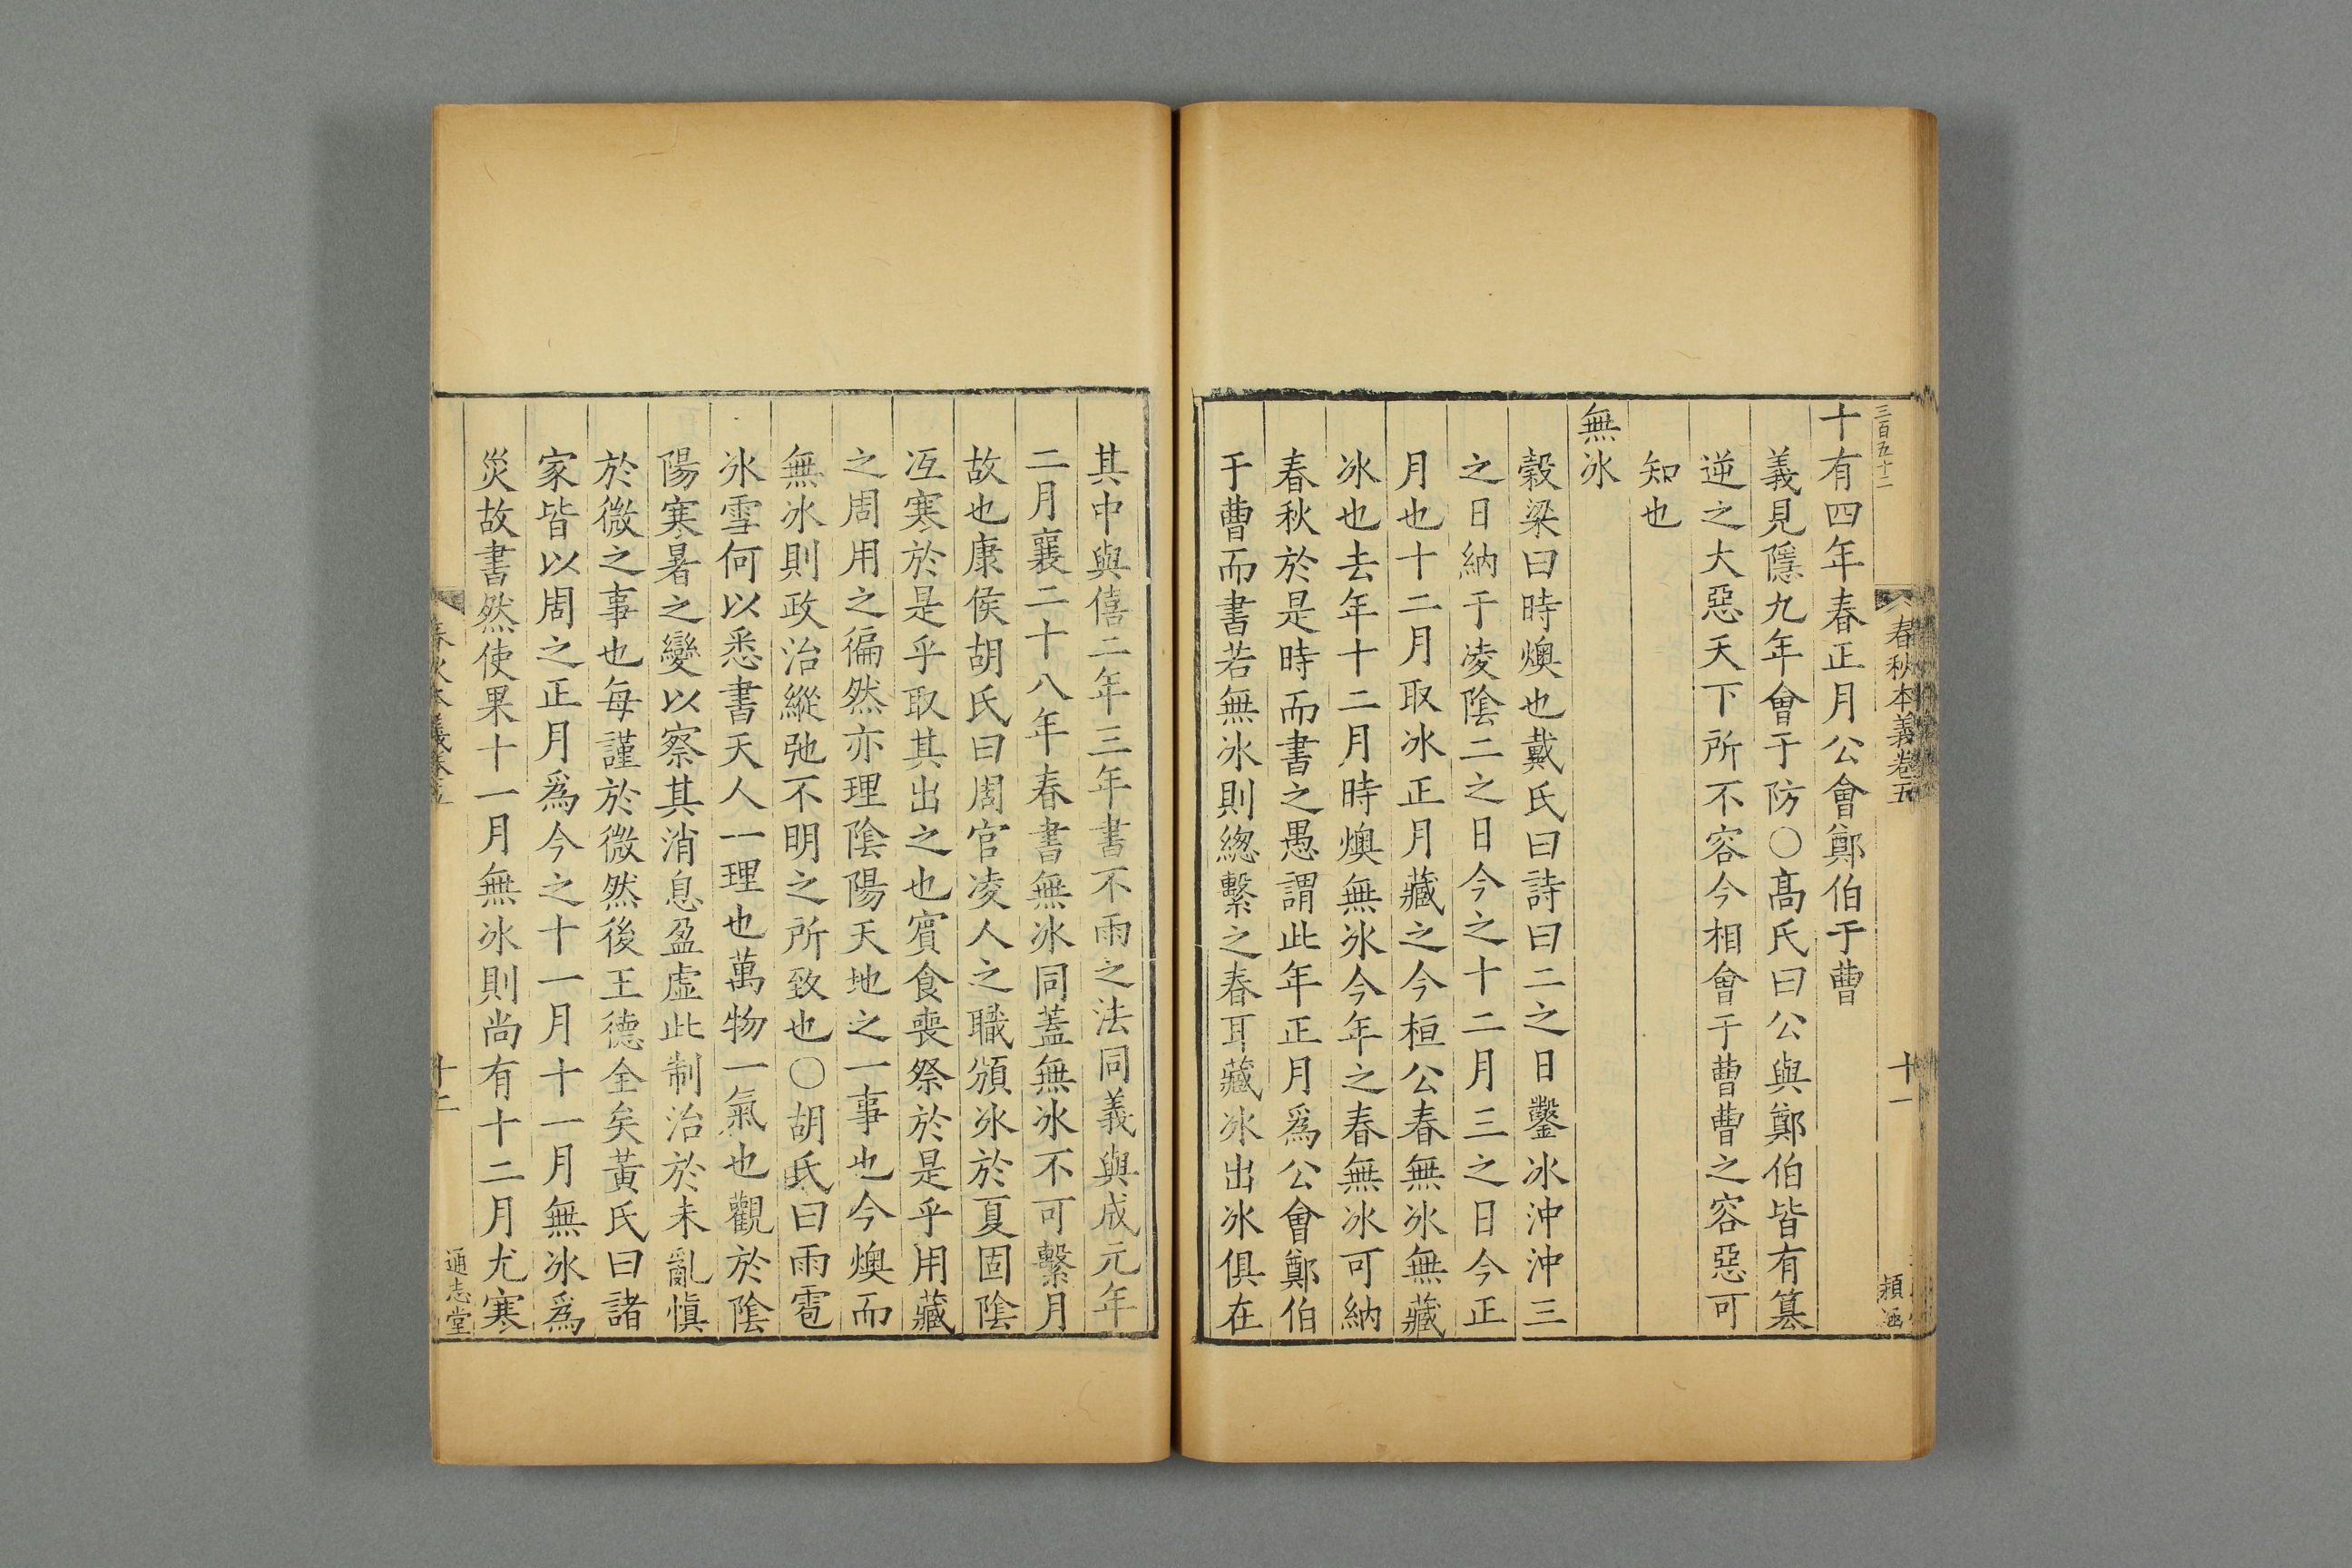 三百五十二
春秋本義卷五
十一
穎
十有四年春正月公會鄭伯于曹
義見隱九年會于防○高氏曰公與鄭伯皆有篡
逆之大惡天下所不容今相會于曹曹之容惡可
知也
無冰
榖梁曰時燠也戴氏曰詩曰二之日鑿冰沖沖三
之日納于凌陰二之日今之十二月三之日今正
月也十二月取冰正月藏之今桓公春無冰無藏
冰也去年十二月時燠無冰今年之春無冰可納
春秋於是時而書之愚謂此年正月爲公會鄭伯
于曹而書若無冰則緫繫之春耳藏冰出冰俱在
其中與僖二年三年書不雨之法同義與成元年
二月襄二十八年春書無冰同蓋無冰不可繫月
故也康侯胡氏曰周官凌人之職頒冰於夏固陰
冱寒於是乎取其出之也賓食喪祭於是乎用藏
之周用之徧然亦理陰陽天地之一事也今燠而
無冰則政治縱弛不明之所致也○胡氏曰雨雹
冰雪何以悉書天人一理也萬物一氣也觀於陰
陽寒暑之變以察其消息盈虛此制治於未亂愼
於微之事也每謹於微然後王德全矣黃氏曰諸
家皆以周之正月爲今之十一月十一月無冰爲
災故書然使果十一月無冰則尚有十二月尤寒
春秋本義卷五
十二
通志堂